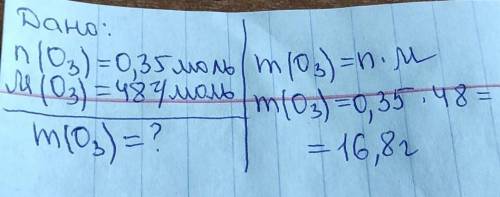 Дано:
n(O₃)=0,35 моль
M(O₃)=48 г/моль
m(O₃)=?
m(O₃)=n·M
m(O₃)=0,35·48=
=16,8г